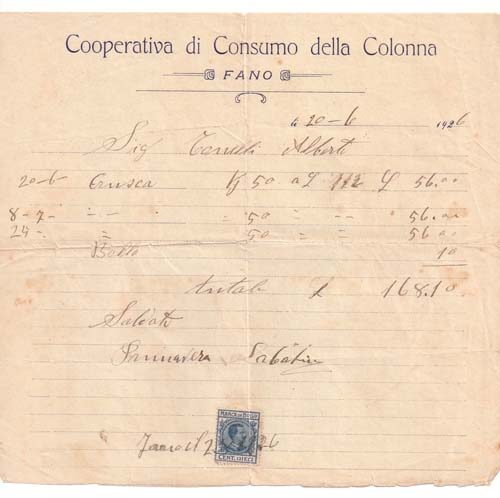 Cooperativa di Consumo della Colonna
FANO
li 20-6 1926
Sig Alberto
20-6 Crusca Kg 50 a L 112 £ 56.00
8-7- " - " = 50 " " 56.00
24 " = 50 " " 56.00
Bollo 10
totale £ 168.10
Saldato
Primavera Sabatino
MARCA DA BOLLO
CENT. DIECI
26